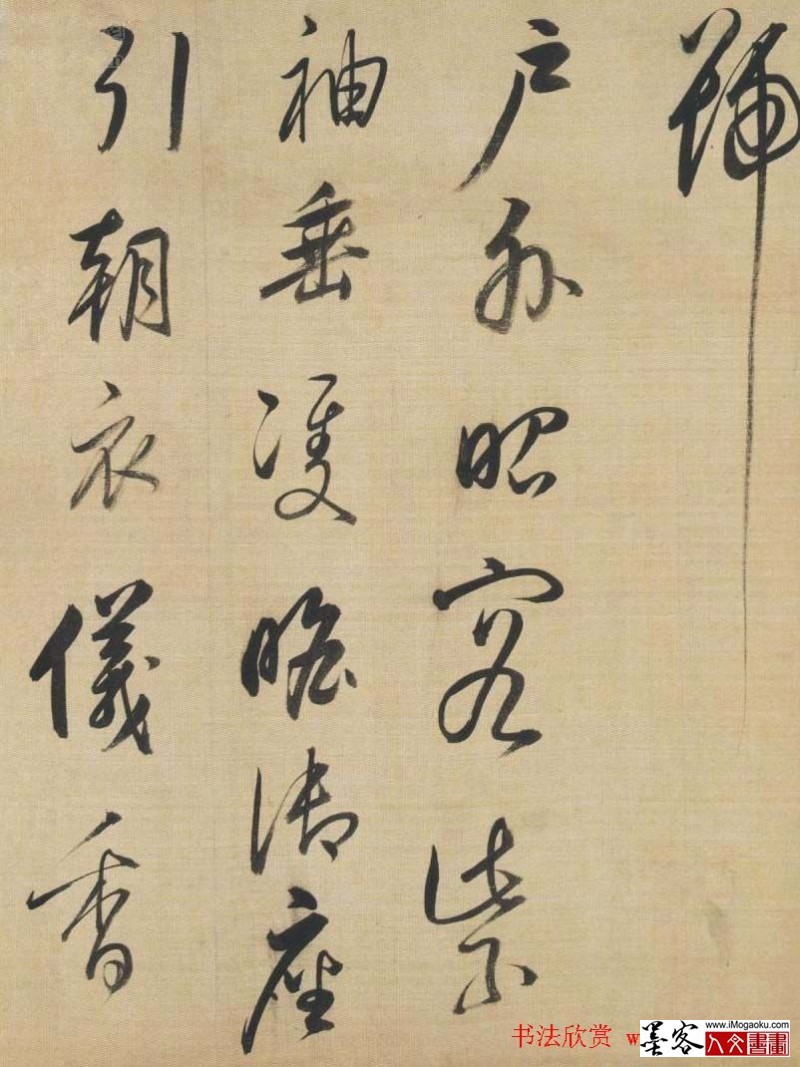 號
户外昭容紫
袖垂雙瞻御座
引朝衣儀香
书法欣赏 w
墨客
www.iMogaoku.com
人文書畫